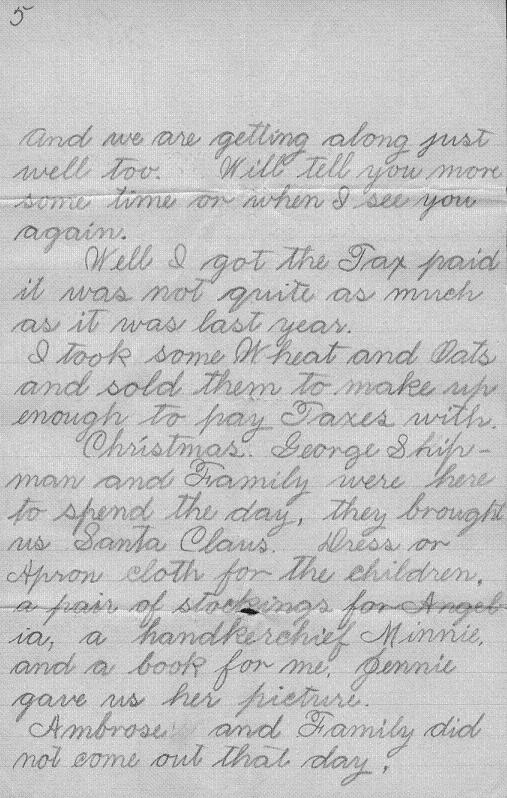 5
And we are getting along just
well too. Will tell you more
some time or when I see you
again.
Well I got the Tax paid
it was not quite as much
as it was last year.
I took some Wheat and Oats
and sold them to make up
enough to pay Taxes with.
Christmas. George Ship-
man and Family were here
to spend the day, they brought
us Santa Claus. Dress or
Apron cloth for the children,
a pair of stockings for Angel
ia, a handkerchief Minnie,
and a book for me, Jennie
gave us her picture.
Ambrose and Family did
not come out that day,